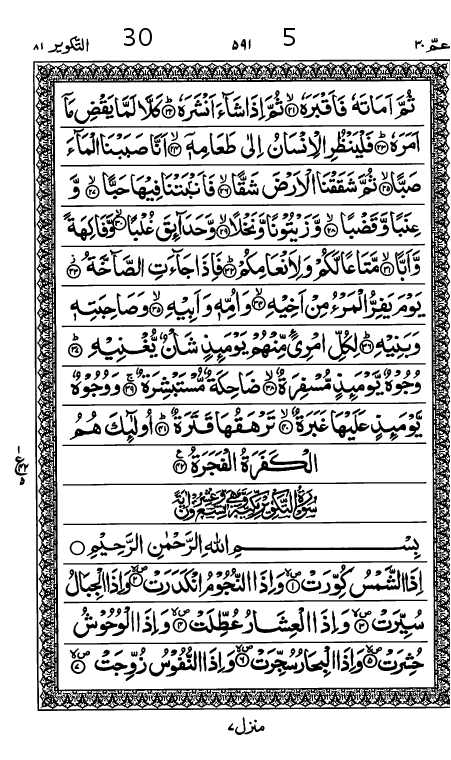 عمّ ٣٠ 5 ٥٩١ 30 التكوير ٨١
ثُمَّ اَمَاتَهٗ فَاَقْبَرَهٗ ۙ﴿٢١﴾ ثُمَّ اِذَا شَآءَ اَنْشَرَهٗ ؕ﴿٢٢﴾ كَلَّا لَمَّا يَقْضِ مَاۤ
اَمَرَهٗ ؕ﴿٢٣﴾ فَلْيَنْظُرِ الْاِنْسَانُ اِلٰى طَعَامِهٖۤ ۙ﴿٢٤﴾ اَنَّا صَبَبْنَا الْمَآءَ
صَبًّا ۙ﴿٢٥﴾ ثُمَّ شَقَقْنَا الْاَرْضَ شَقًّا ۙ﴿٢٦﴾ فَاَنْۢبَتْنَا فِيْهَا حَبًّا ۙ﴿٢٧﴾ وَّ
عِنَبًا وَّقَضْبًا ۙ﴿٢٨﴾ وَّ زَيْتُوْنًا وَّنَخْلًا ۙ﴿٢٩﴾ وَّحَدَآئِقَ غُلْبًا ۙ﴿٣٠﴾ وَّفَاكِهَةً
وَّ اَبًّا ۙ﴿٣١﴾ مَّتَاعًا لَّكُمْ وَلِاَنْعَامِكُمْ ؕ﴿٣٢﴾ فَاِذَا جَآءَتِ الصَّآخَّةُ ۫﴿٣٣﴾
يَوْمَ يَفِرُّ الْمَرْءُ مِنْ اَخِيْهِ ۙ﴿٣٤﴾ وَاُمِّهٖ وَ اَبِيْهِ ۙ﴿٣٥﴾ وَصَاحِبَتِهٖ
وَبَنِيْهِ ؕ﴿٣٦﴾ لِكُلِّ امْرِئٍ مِّنْهُمْ يَوْمَئِذٍ شَاْنٌ يُّغْنِيْهِ ؕ﴿٣٧﴾
وُجُوْهٌ يَّوْمَئِذٍ مُّسْفِرَةٌ ۙ﴿٣٨﴾ ضَاحِكَةٌ مُّسْتَبْشِرَةٌ ۚ﴿٣٩﴾ وَوُجُوْهٌ
يَّوْمَئِذٍ عَلَيْهَا غَبَرَةٌ ۙ﴿٤٠﴾ تَرْهَقُهَا قَتَرَةٌ ؕ﴿٤١﴾ اُولٰٓئِكَ هُمُ
الْكَفَرَةُ الْفَجَرَةُ ﴿٤٢﴾
١ ع ٤٢ ٥
سُوْرَةُ التَّكْوِيْرِ مَكِّيَّةٌ وَّهِيَ تِسْعٌ وَّعِشْرُوْنَ اٰيَةً
بِسْمِ اللّٰهِ الرَّحْمٰنِ الرَّحِيْمِ ○
اِذَا الشَّمْسُ كُوِّرَتْ ۪ۙ﴿١﴾ وَاِذَا النُّجُوْمُ انْكَدَرَتْ ۪ۙ﴿٢﴾ وَاِذَا الْجِبَالُ
سُيِّرَتْ ۪ۙ﴿٣﴾ وَاِذَا الْعِشَارُ عُطِّلَتْ ۪ۙ﴿٤﴾ وَاِذَا الْوُحُوْشُ
حُشِرَتْ ۪ۙ﴿٥﴾ وَاِذَا الْبِحَارُ سُجِّرَتْ ۪ۙ﴿٦﴾ وَاِذَا النُّفُوْسُ زُوِّجَتْ ۪ۙ﴿٧﴾
منزل ٧